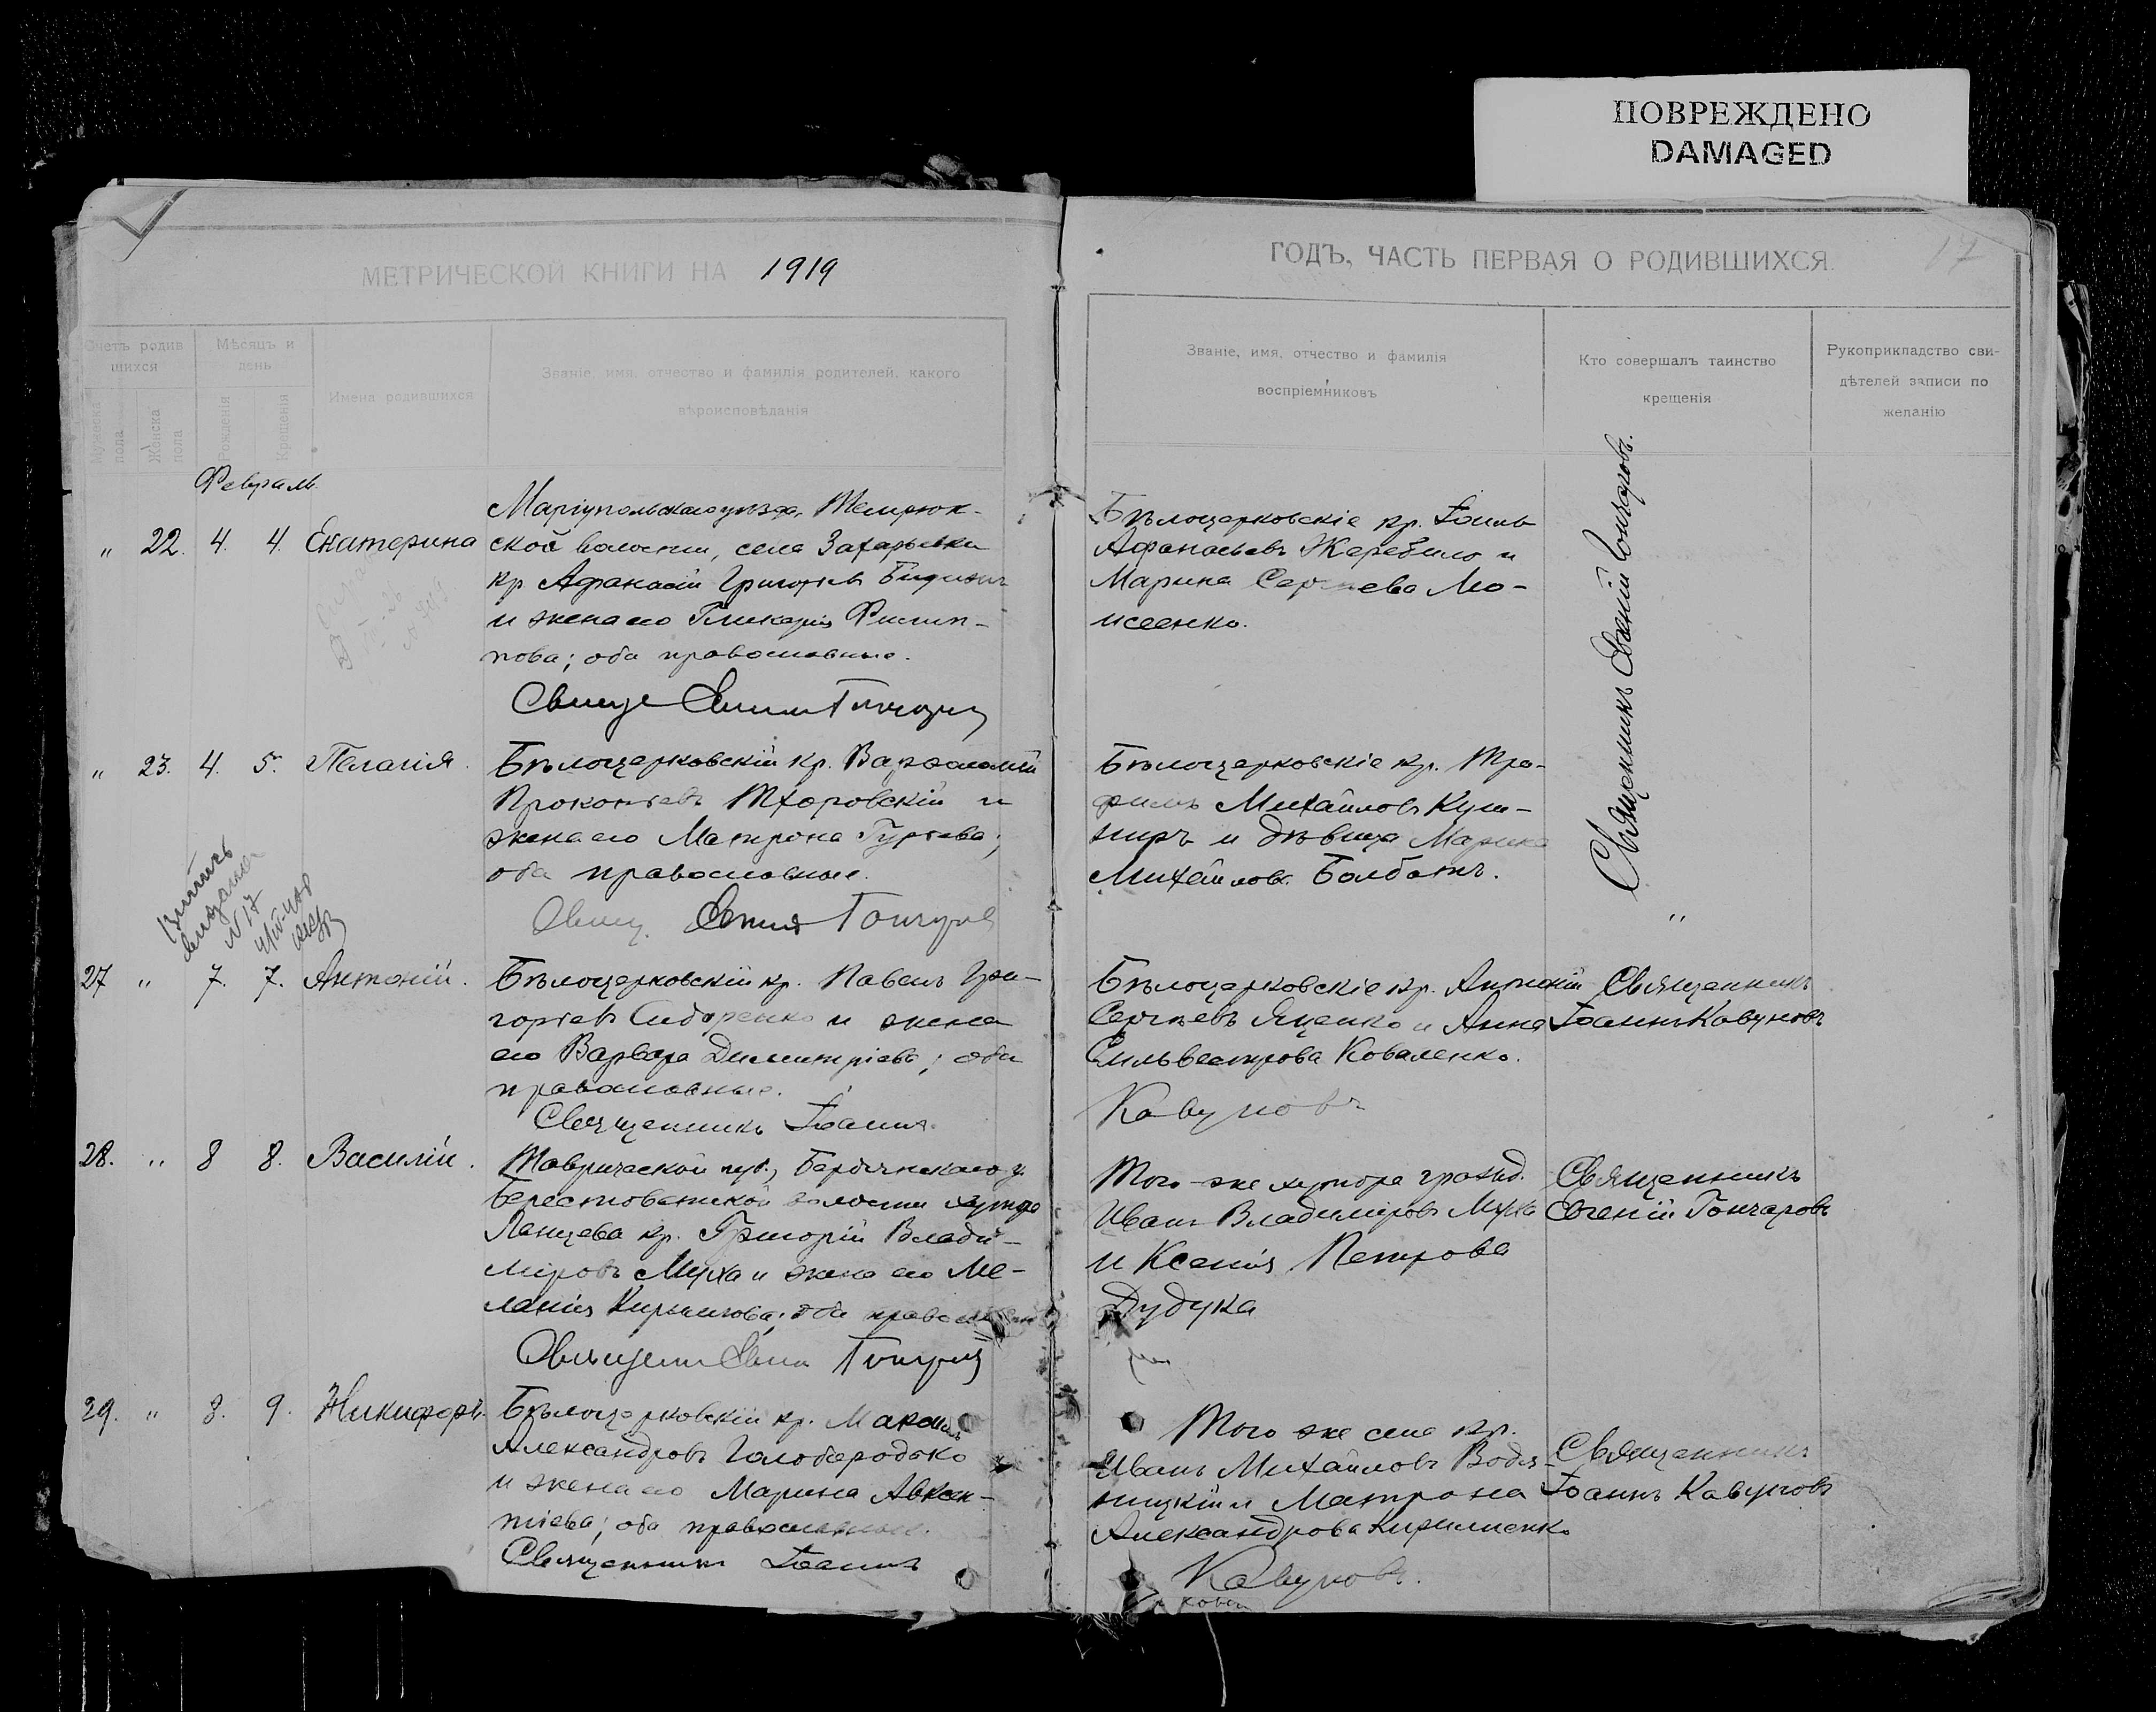 ПОВРЕЖДЕНО
DAMAGED
МЕТРИЧЕСКОЙ КНИГИ НА 1919
ГОДЪ, ЧАСТЬ ПЕРВАЯ О РОДИВШИХСЯ.
17
Счетъ родив
шихся
Мужеска
пола
Женска
пола
Мѣсяцъ и
день
Рожденія
Крещенія
Имена родившихся
Званіе, имя, отчество и фамилія родителей, какого
вѣроисповѣданія
Званіе, имя, отчество и фамилія
воспріемниковъ
Кто совершалъ таинство
крещенія
Рукоприкладство сви-
дѣтелей записи по
желанію
Февраль
" 22. 4. 4. Екатерина
Маріупольскаго уѣзда, Темрюк-
ской волости, села Захарьевки
кр Аѳанасій Григорьевъ
и жена его Гликерія Филип-
пова; оба православные.
Бѣлоцерковскіе кр. Іоинъ
Аѳанасьевъ Жеребило и
Марина Сергѣева Мо-
исеенко.
Священникъ Евгеній Гончаровъ.
" 23. 4. 5. Пелагія.
Бѣлоцерковскій кр. Варѳоломій
Прокопьевъ Тхоровскій и
жена его Матрона Гурьева;
оба православные.
Бѣлоцерковскіе кр. Тро-
фимъ Михайловъ Куш-
ниръ и дѣвица Марина
Михайлова Болбатъ.
"
N 17
27 " 7. 7. Антоній.
Бѣлоцерковскій кр. Павелъ Гри-
горьевъ Сидоренко и жена
его Варвара Димитріева; оба
православные.
Священникъ Іоаннъ
Бѣлоцерковскіе кр. Антоній
Сергѣевъ Яценко и Анна
Сильвестрова Коваленко.
Кавуновъ
Священникъ
Іоаннъ Кавуновъ
28. " 8 8. Василій.
Таврической губ., Бердянскаго у.
Берестоватской волости хутора
Ланцева кр. Григорій Влади-
міровъ Муха и жена его Ме-
ланія Кириллова; оба православн
Того-же хутора гражд.
Иванъ Владиміровъ Муха
и Ксенія Петрова
Дудука
Священникъ
Евгеній Гончаровъ
29. " 8. 9. Никифоръ.
Бѣлоцерковскій кр. Максимъ
Александровъ Голобородько
и жена его Марина Авксен-
тіева; оба православные.
Священникъ Іоаннъ
Того же села кр.
Иванъ Михайловъ Водя-
ницкій и Матрона
Александрова Кириленко
Кавуновъ.
Священникъ
Іоаннъ Кавуновъ